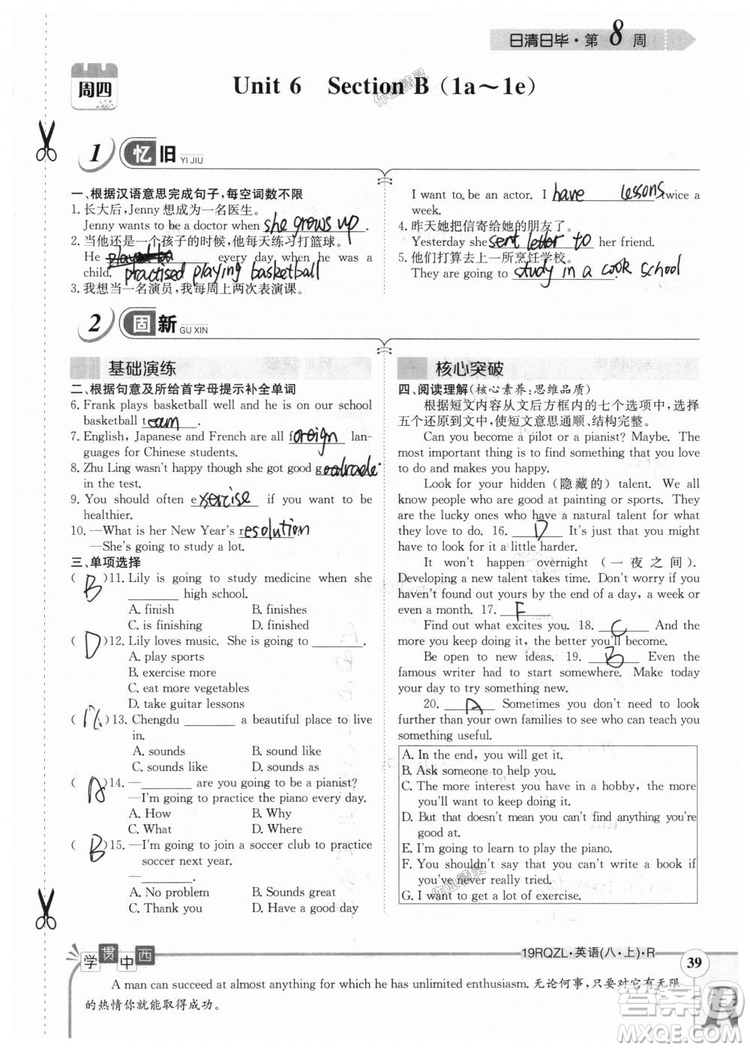 日清日毕·第8周
周四
Unit 6 Section B (1a～1e)
1 忆旧 YI JIU
一、根据汉语意思完成句子,每空词数不限
1. 长大后,Jenny想成为一名医生。
Jenny wants to be a doctor when she grows up.
2. 当他还是一个孩子的时候,他每天练习打篮球。
He every day when he was a
child. practised playing basketball
3. 我想当一名演员,我每周上两次表演课。
I want to be an actor. I have lessons twice a
week.
4. 昨天她把信寄给她的朋友了。
Yesterday she sent letter to her friend.
5. 他们打算去一所烹饪学校。
They are going to study in a cook school
2 固新 GU XIN
基础演练
二、根据句意及所给首字母提示补全单词
6. Frank plays basketball well and he is on our school
basketball team.
7. English, Japanese and French are all foreign lan-
guages for Chinese students.
8. Zhu Ling wasn't happy though she got good
in the test.
9. You should often exercise if you want to be
healthier.
10. —What is her New Year's resolution
—She's going to study a lot.
三、单项选择
( B )11. Lily is going to study medicine when she
________ high school.
A. finish B. finishes
C. is finishing D. finished
( D )12. Lily loves music. She is going to ________.
A. play sports
B. exercise more
C. eat more vegetables
D. take guitar lessons
( )13. Chengdu ________ a beautiful place to live
in.
A. sounds B. sounds like
C. sound D. sounds as
( A )14. —________ are you going to be a pianist?
—I'm going to practice the piano every day.
A. How B. Why
C. What D. Where
( B )15. —I'm going to join a soccer club to practice
soccer next year.
—________.
A. No problem B. Sounds great
C. All right D. You're welcome
核心突破
四、阅读理解(核心素养:思维品质)
根据短文内容从文后方框内的七个选项中,选择
五个还原到文中,使短文意思通顺、结构完整。
Can you become a pilot or a pianist? Maybe. The
most important thing is to find something you love
to do and makes you happy.
Look for your hidden (隐藏的) talent. Look at
everything. Some are good at painting or sports. They
are the lucky ones who have a natural talent for what
they love to do. 16. D It's just that you might
have to look for it a little harder.
It won't happen overnight (一夜之间).
Developing a new talent takes time. Don't be afraid if you
haven't found yours by the end of a day, a week or
even a month. 17. F
Find out what excites you. 18. C And the
more you keep doing it, the better you'll become.
Be open to new ideas. 19. B Even the most
famous writer has to start somewhere. Make today
your day to try something new.
20. A Sometimes you don't need to look
further than your own families to see who can teach you
something useful.
A. In the end, you will get it.
B. Ask someone to help you.
C. The more interest you have in a hobby, the more
you will learn about it.
D. But that doesn't mean you can't find anything you're
good at.
E. I'm going to learn to play the piano.
F. You shouldn't say that you can't write a book if
you've never tried.
G. I was excited to know about it.
学贯中西
19RQZL·英语(八·上)·R
39
A man can succeed at almost anything for which he has unlimited enthusiasm. 无论何事,只要对它有无限
的热情你就能取得成功。
MXQE.COM